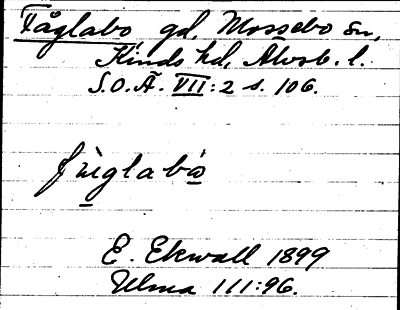 Fåglabo gd, Mossebo sn,
Kinds hd, Älvsb. l.
S.O.Ä. VII:2 s. 106.
fùglabo
E. Ekwall 1899
Ulma 111:96.